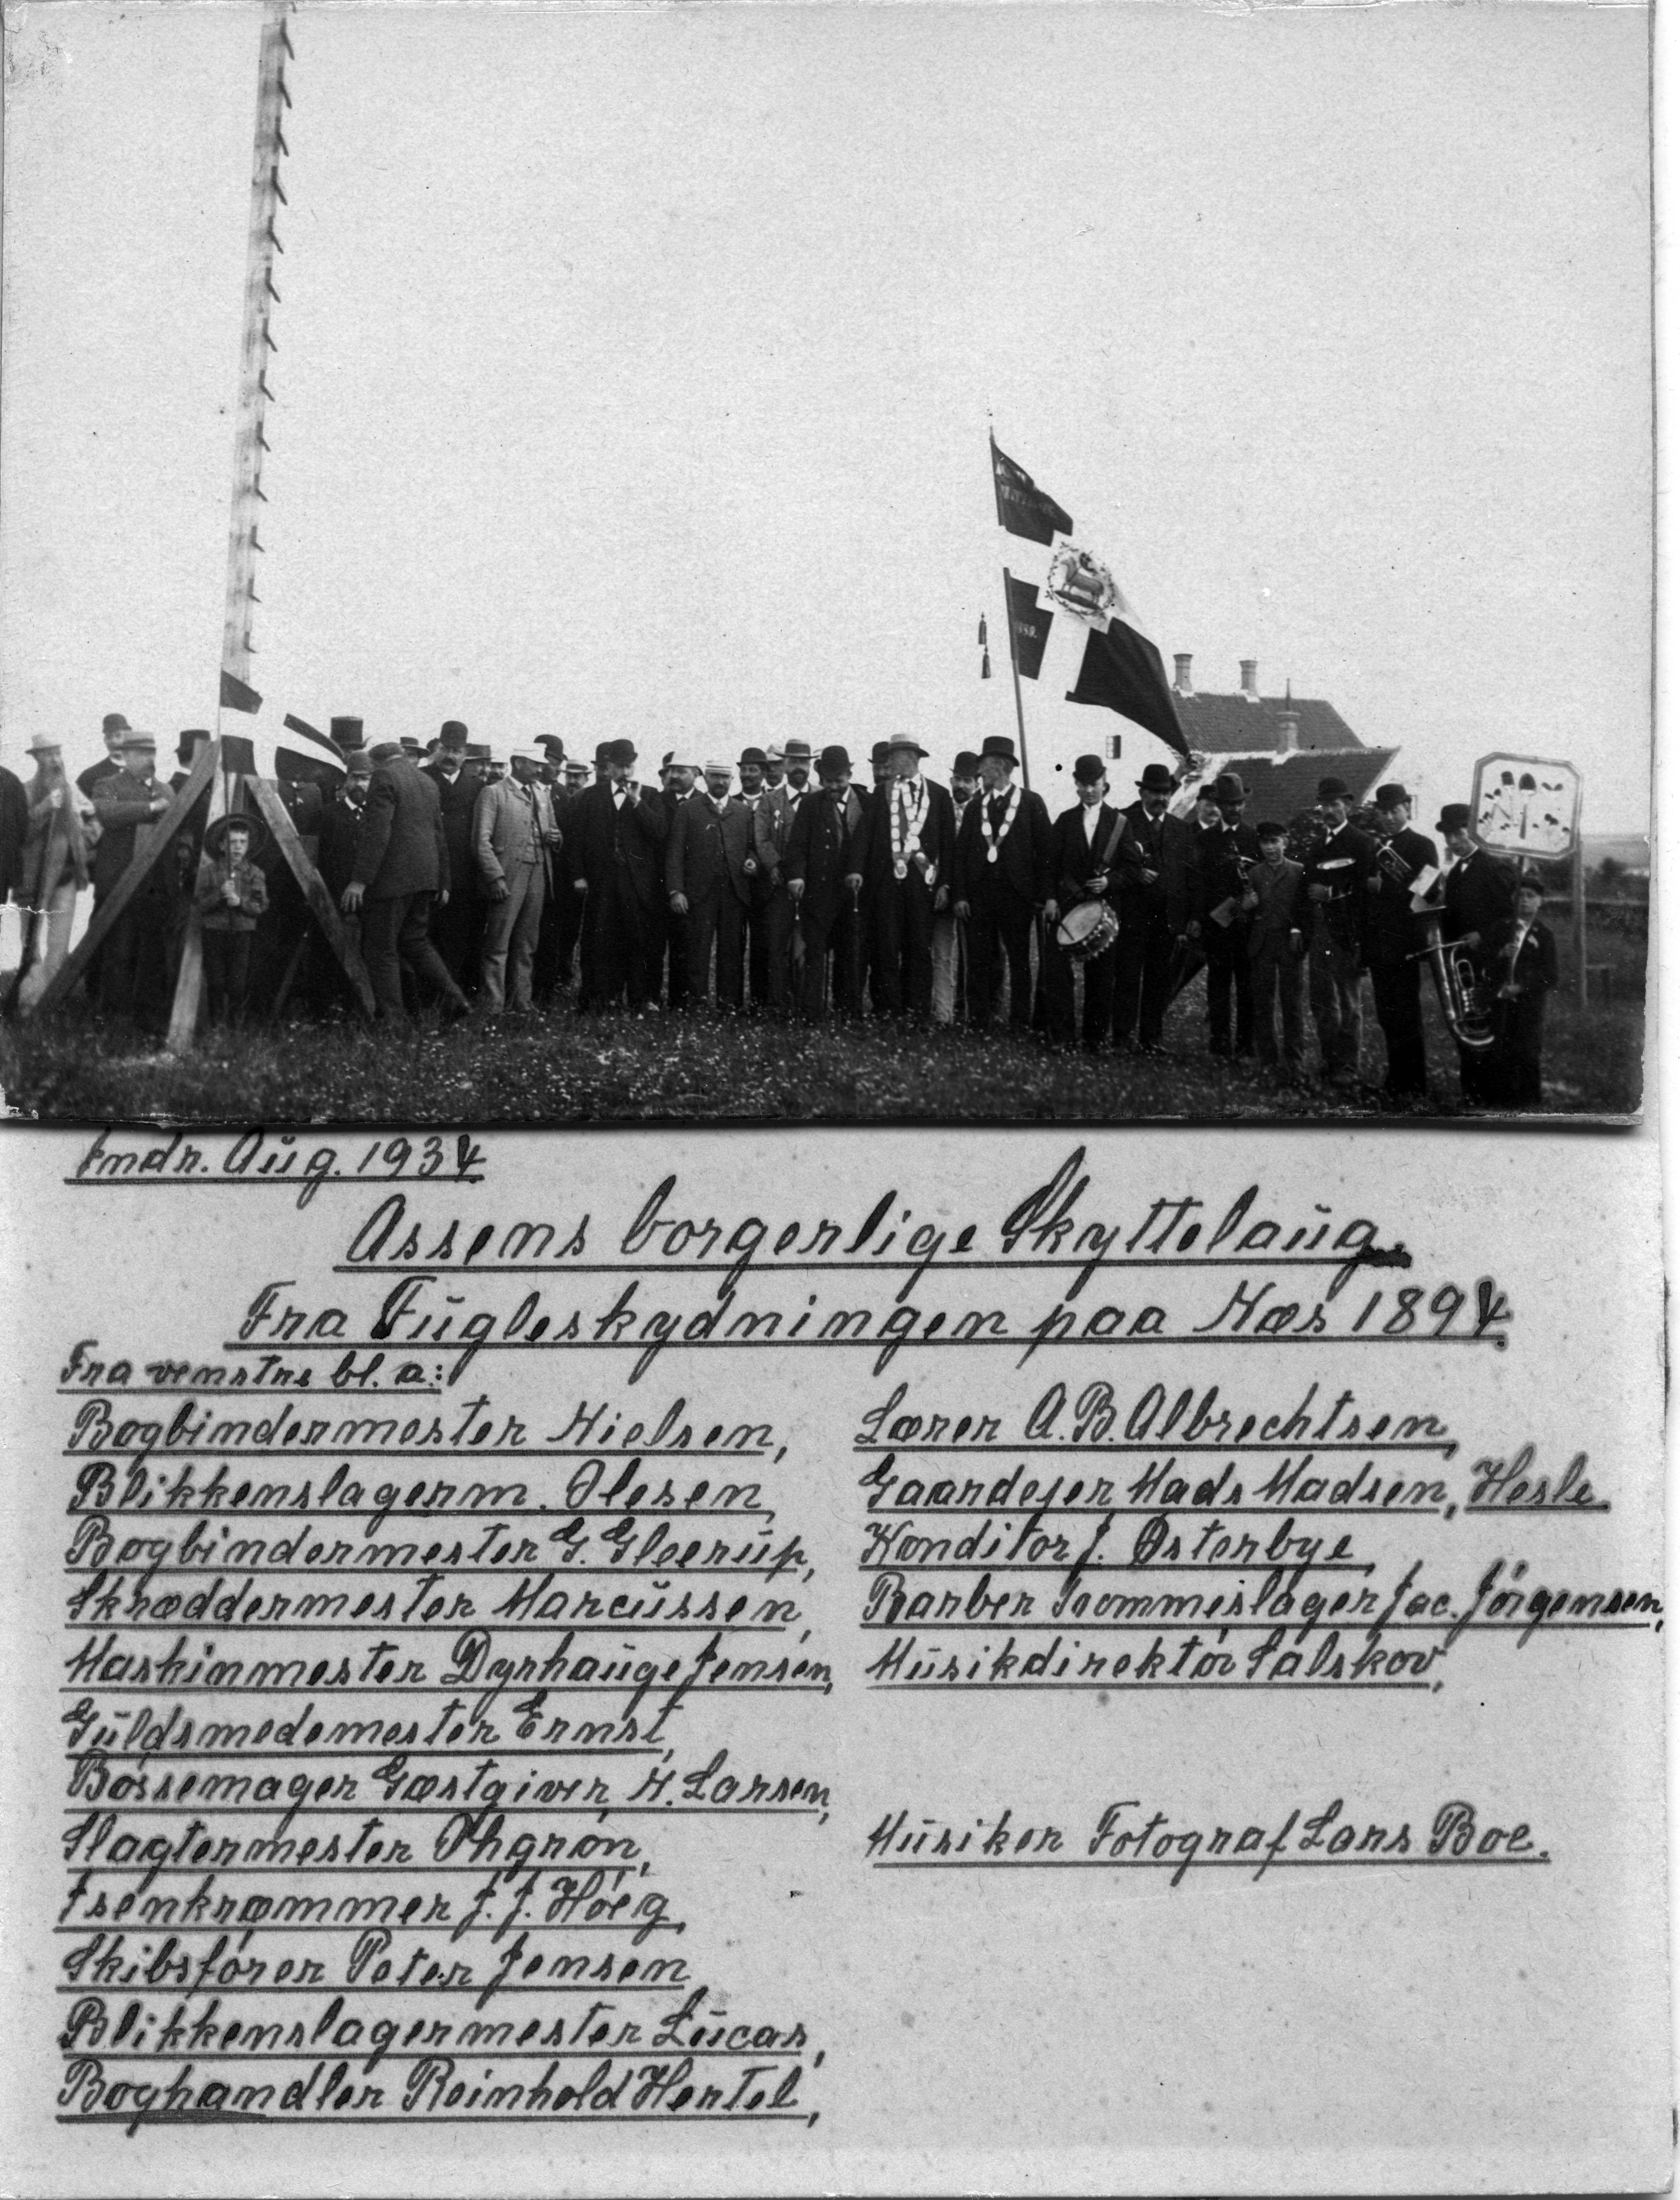 Indr. Aug. 1934
Assens borgerlige Skyttelaug.
Fra Fugleskydningen paa Næs 1894.
Fra venstre bl. a:
Bogbindermester Nielsen,
Blikkenslagerm. Olesen,
Bogbindermester G. Gleerup,
Skræddermester Marcussen,
Maskinmester Dyrhauge Jensen,
Guldsmedemester Ernst,
Bøssemager Gæstgiver, H. Larsen,
Slagtermester Ohgrøn,
Isenkræmmer J. J. Høeg,
Skibsfører Peter Jensen
Blikkenslagermester Lucas,
Boghandler Reinhold Hertel,
Lærer A. B. Albrechtsen,
Gaardejer Mads Madsen, Hesle
Konditor J. Østerbye,
Barber Trommeslager Jac. Jørgensen,
Musikdirektør Salskov,
Musiker Fotograf Lars Boe.